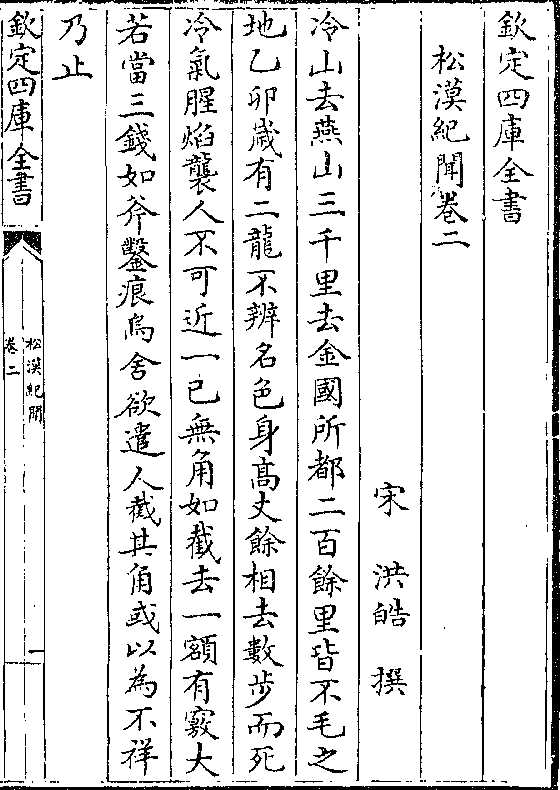 欽定四庫全書
松漠紀聞卷二
宋　洪皓　撰
冷山去燕山三千里去金國所都二百餘里皆不毛之
地乙卯歲有二龍不辨名色身高丈餘相去數步而死
冷氣腥焰襲人不可近一已無角如截去一額有竅大
若當三錢如斧鑿痕烏舍欲遣人截其角或以為不祥
乃止
欽定四庫全書
松漠紀聞
卷二
一